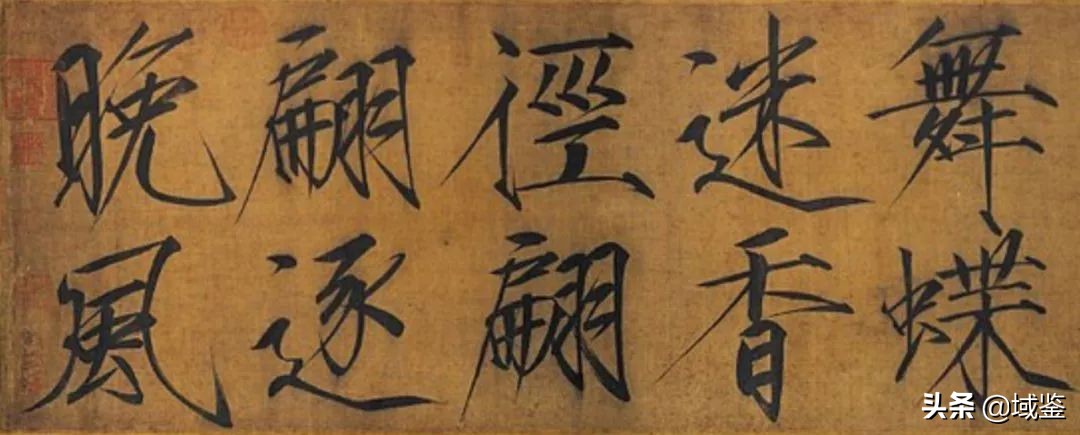 舞蝶
迷香
徑翩
翩逐
晚風
头条 @域鉴